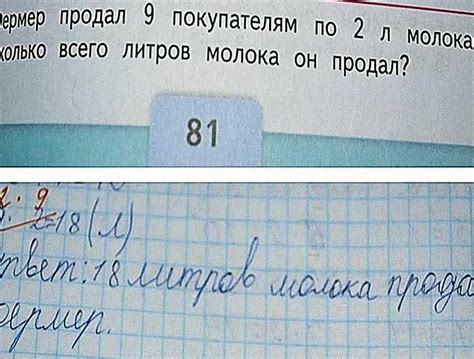 ермер продал 9 покупателям по 2 л молока
колько всего литров молока он продал?
81
2 · 9
9 · 2=18 (л)
твет: 18 литров молока прода
ермер.